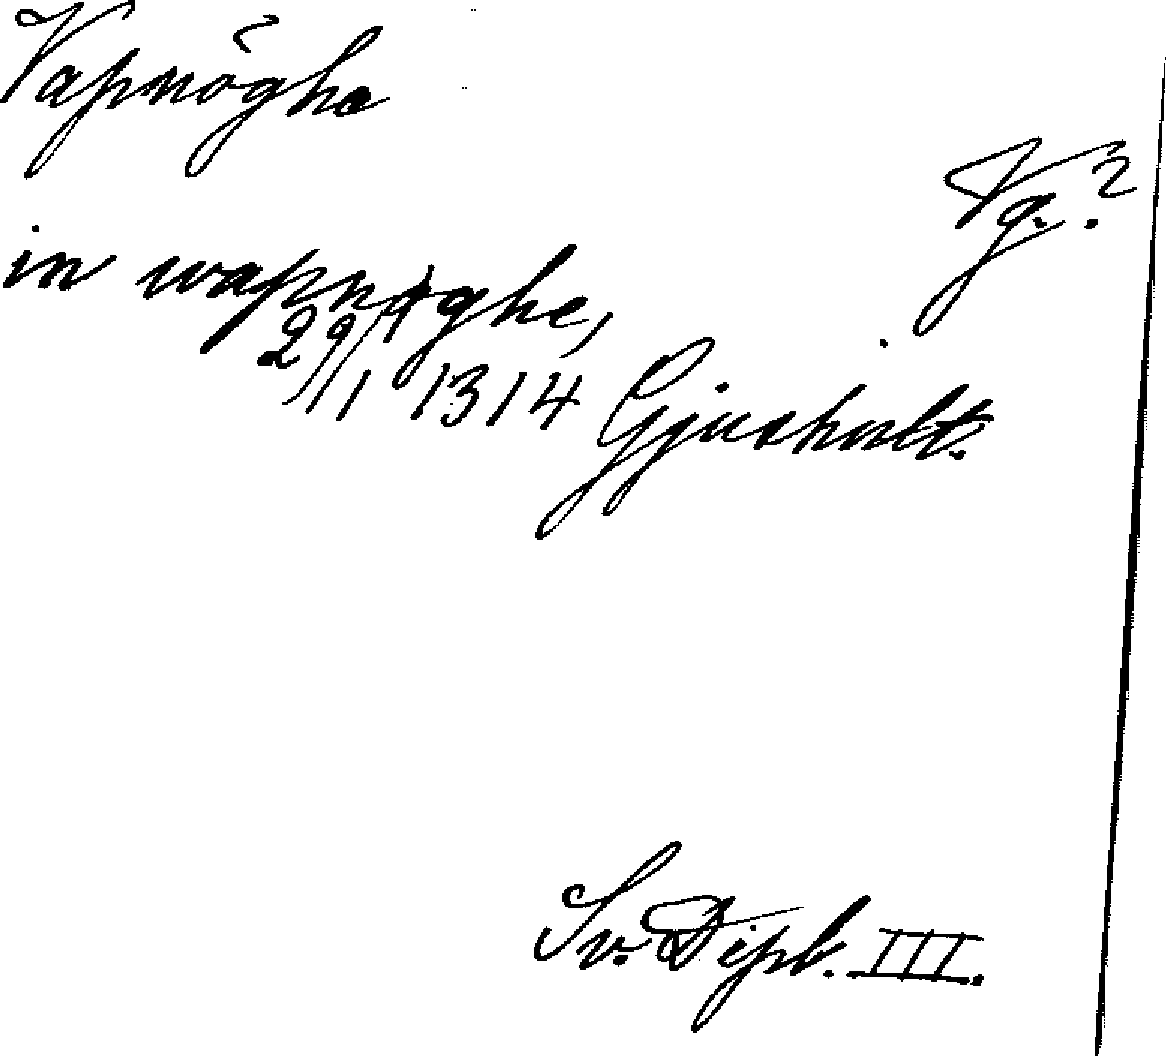 Vapnöghe
Vg.?
in wapnøghe,
29/1 1314 Gjusholt.
Sv. Dipl. III.